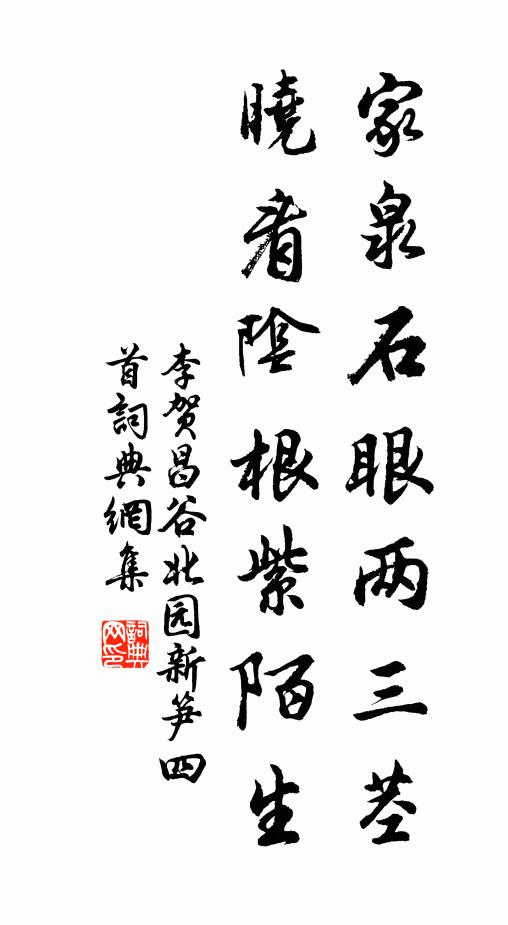 家泉石眼两三茎
曉看陰根紫陌生
李贺昌谷北园新笋四
首詞典網集
詞典
网印